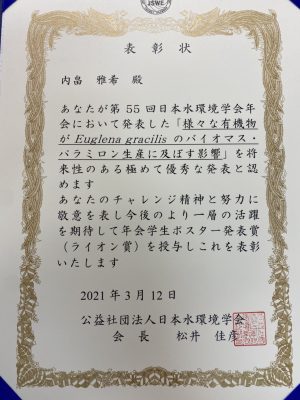 JSWE
表彰状
内畠 雅希 殿
あなたが第55回日本水環境学会年
会において発表した「様々な有機物
がEuglena gracilisのバイオマス・
パラミロン生産に及ぼす影響」を将
来性のある極めて優秀な発表と認
めます
あなたのチャレンジ精神と努力に
敬意を表し今後のより一層の活躍
を期待して年会学生ポスター発表賞
（ライオン賞）を授与しこれを表彰
いたします
2021年3月12日
公益社団法人日本水環境学会
会長 松井 佳彦